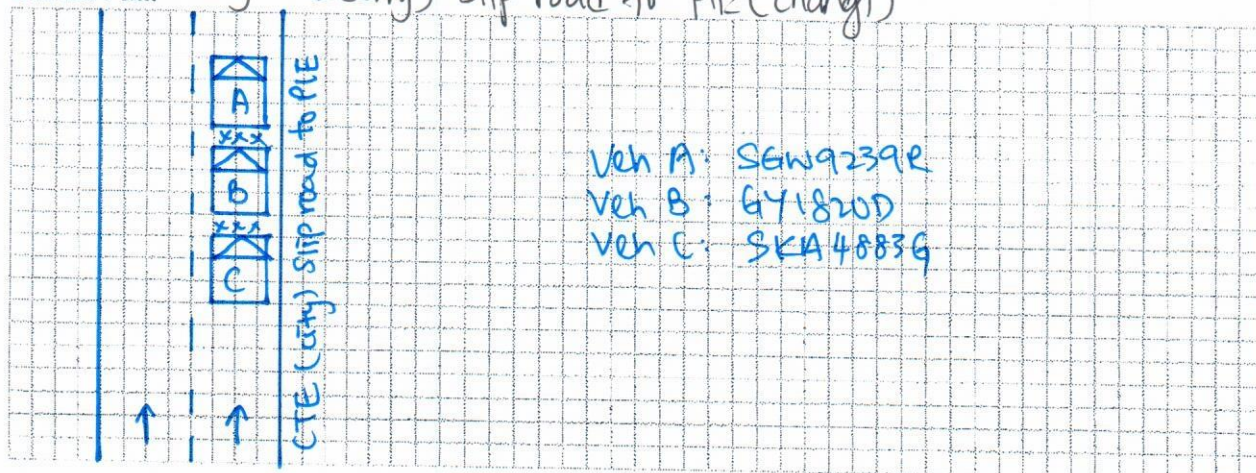 slip road to PIE (changi)
A
xxx
B
xxx
C
CTE (city) Slip road to PIE
Veh A: SGW9239R
Veh B: GY1820D
Veh C: SKA4883G